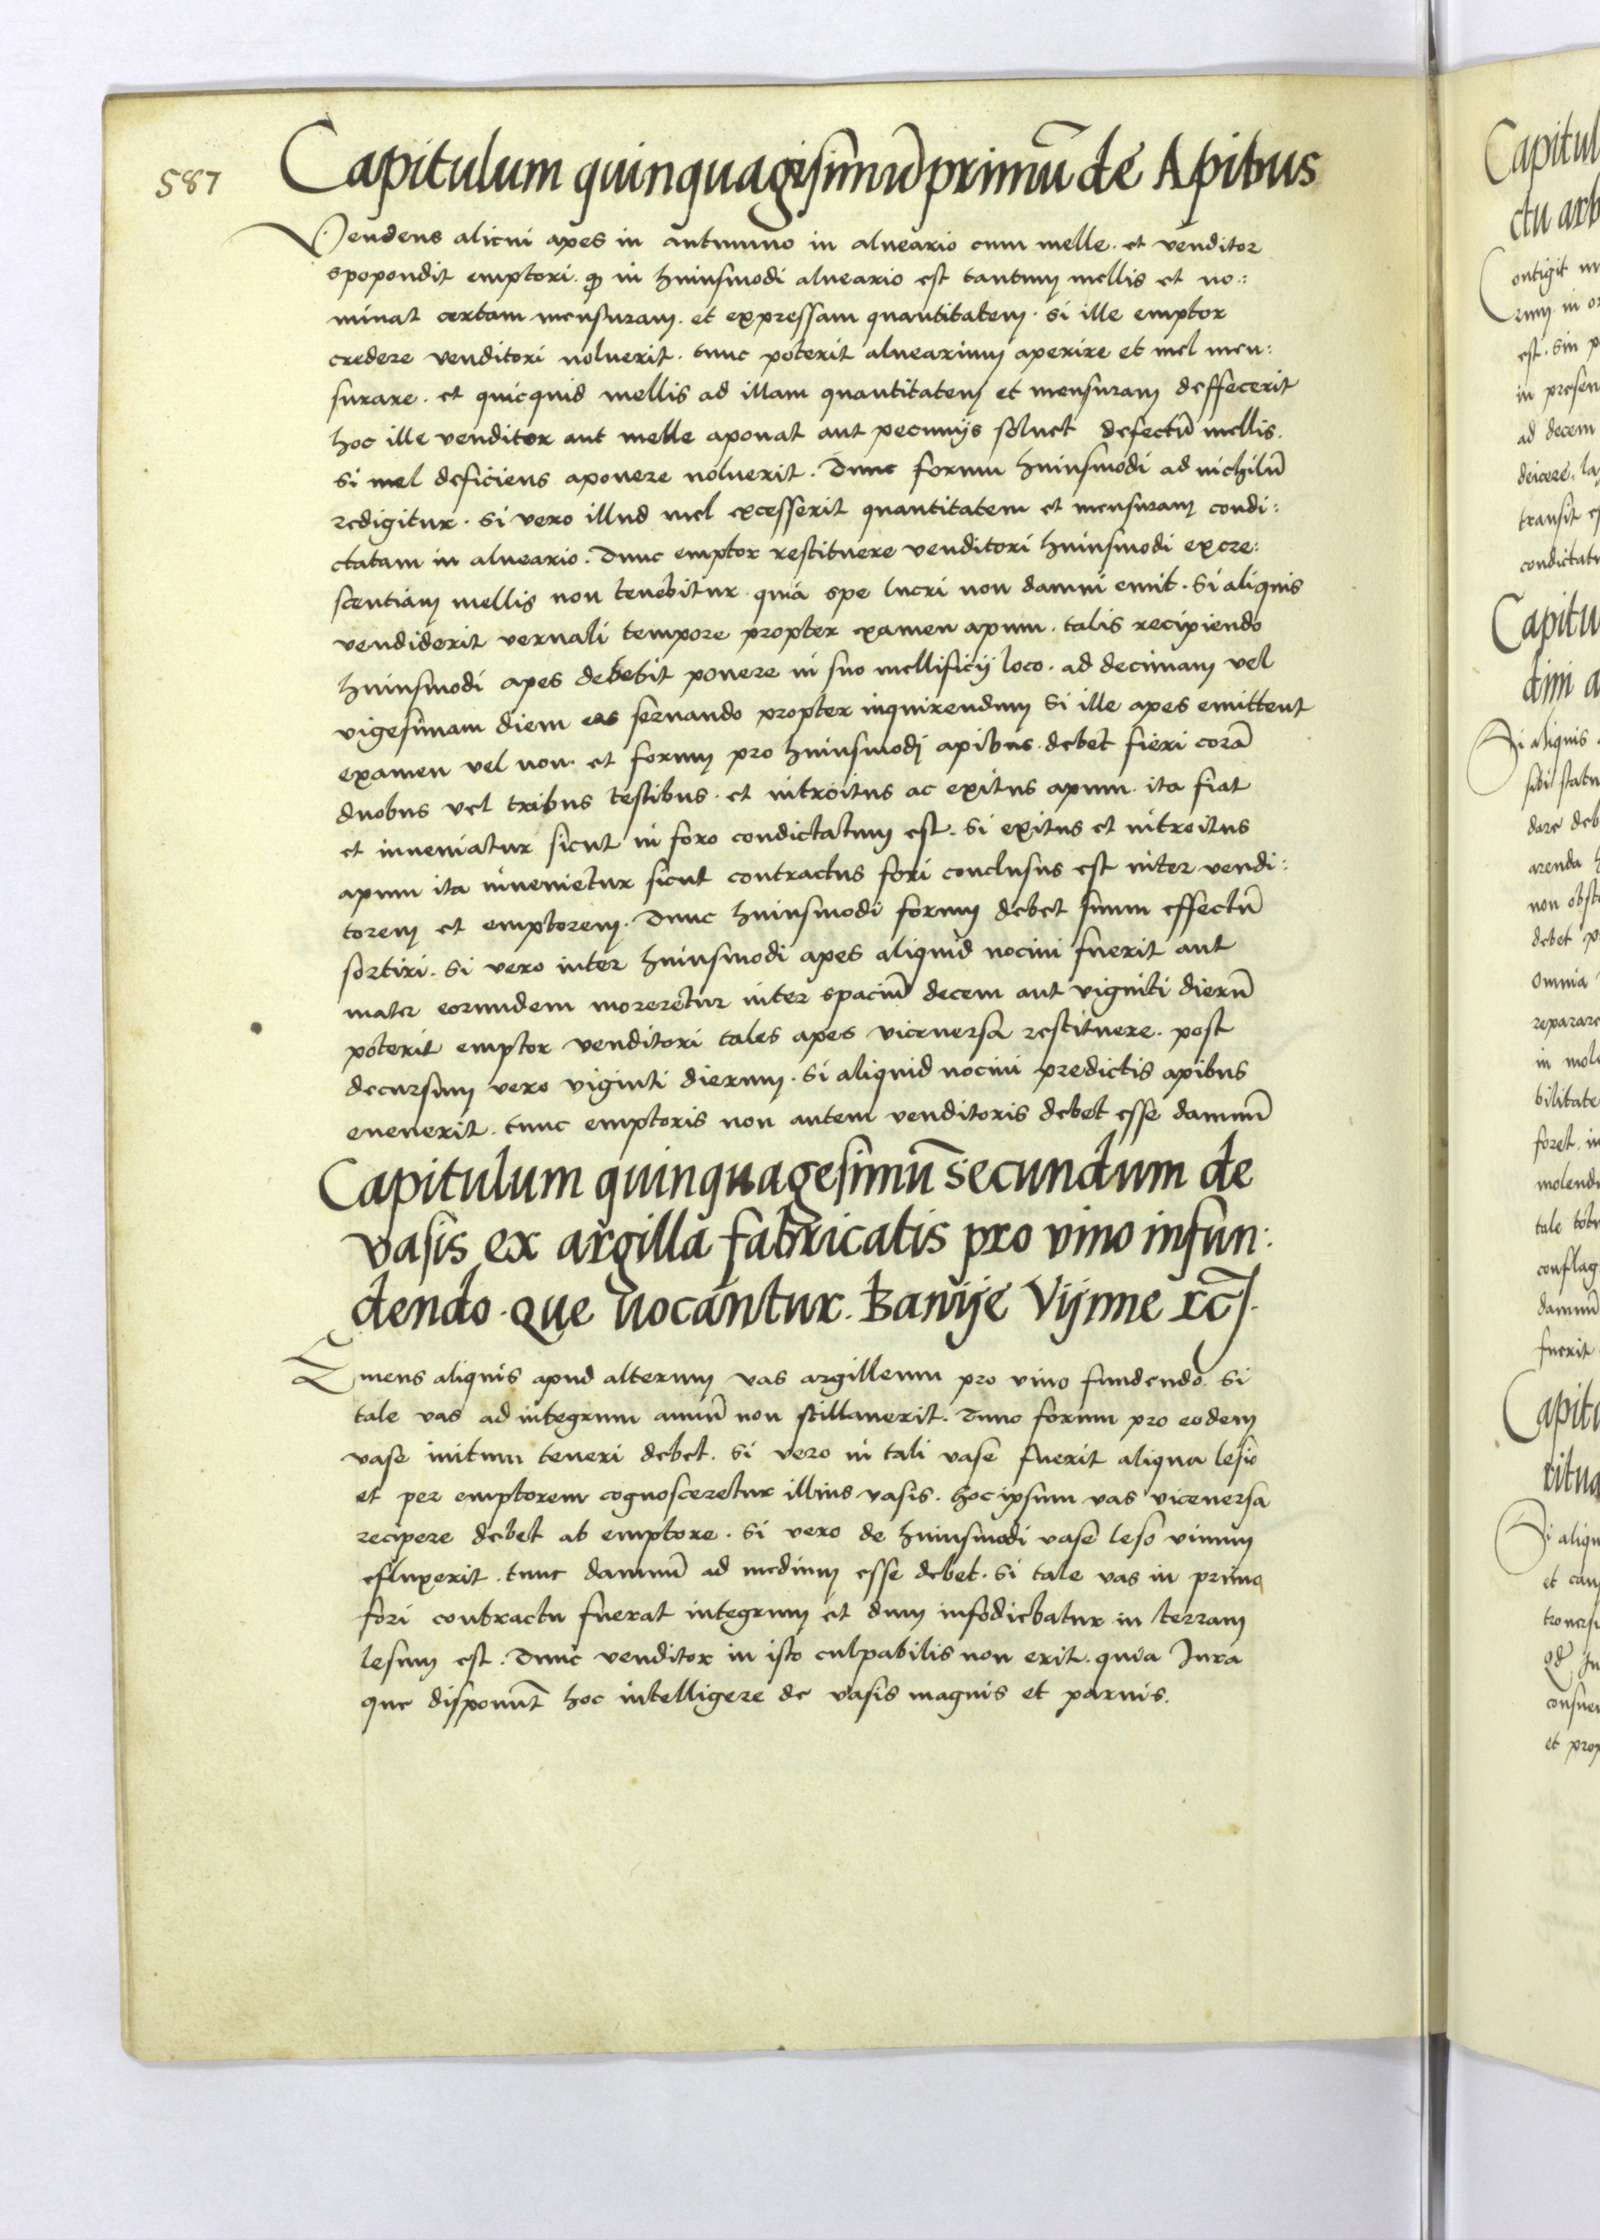 587
Capitulum quinquagesimũ primũ de Apibus
Vendens alicui apes in autumno in alueario cum melle. et venditor
spopondit emptori. ꝙ in huiusmodi alueario est tantum mellis et no:
minat certam mensuram. et expressam quantitatem. si ille emptor
credere venditori noluerit. tunc poterit aluearium aperire et mel men:
surare. et quicquid mellis ad illam quantitatem et mensuram deffecerit
hoc ille venditor aut melle aponat aut pecunijs soluet defectũ mellis.
si mel deficiens aponere noluerit. Tunc forum huiusmodi ad nichilũ
redigitur. si vero illud mel excesserit quantitatem et mensuram condi:
ctatam in alueario. Tunc emptor restituere venditori huiusmodi excre:
scentiam mellis non tenebitur. quia spe lucri non damni emit. Si aliquis
vendiderit vernali tempore propter examen apum. talis recipiendo
huiusmodi apes debebit ponere in suo mellificij loco. ad decimam vel
vigesimam diem eas seruando propter inquirendum si ille apes emittent
examen vel non. et forum pro huiusmodj apibus debet fieri corã
duobus vel tribus testibus. et introitus ac exitus apum. ita fiat
et inueniatur sicut in foro condictatum est. Si exitus et introitus
apum ita inuenietur sicut contractus fori conclusus est inter vendi:
torem et emptorem. Tunc huiusmodi forum debet suum effectũ
sortiri. Si vero inter huiusmodi apes aliquid nociui fuerit aut
mater eorundem moreretur inter spaciũ decem aut viginti dierũ
poterit emptor venditori tales apes viceuersa restituere. post
decursum vero viginti dierum. Si aliquid nociui predictis apibus
euenerit. tunc emptoris non autem venditoris debet esse damnũ
Capitulum quinquagesimũ secundum de
vasis ex argilla fabricatis pro vino infun:
dendo. que uocantur. Banije Vijnne
Emens aliquis apud alterum vas argilleum pro vino fundendo. Si
tale vas ad integrum annũ non stillauerit. Tunc forum pro eodem
vase initum teneri debet. Si vero in tali vase fuerit aliqua lesio
et per emptorem cognosceretur illius vasis. hoc ipsum vas viceuersa
recipere debet ab emptore. si vero de huiusmodi vase leso vinum
efluxerit. tunc damnũ ad medium esse debet. Si tale vas in primo
fori contractu fuerat integrum et dum infodiebatur in terram
lesum est. Tunc venditor in isto culpabilis non erit. quia Jura
que disponũt hoc intelligere de vasis magnis et paruis.